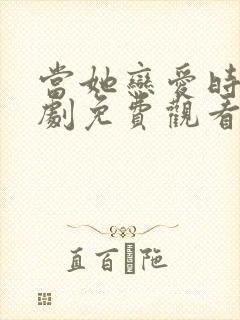 當她戀愛時
劇免費觀看
直百陁